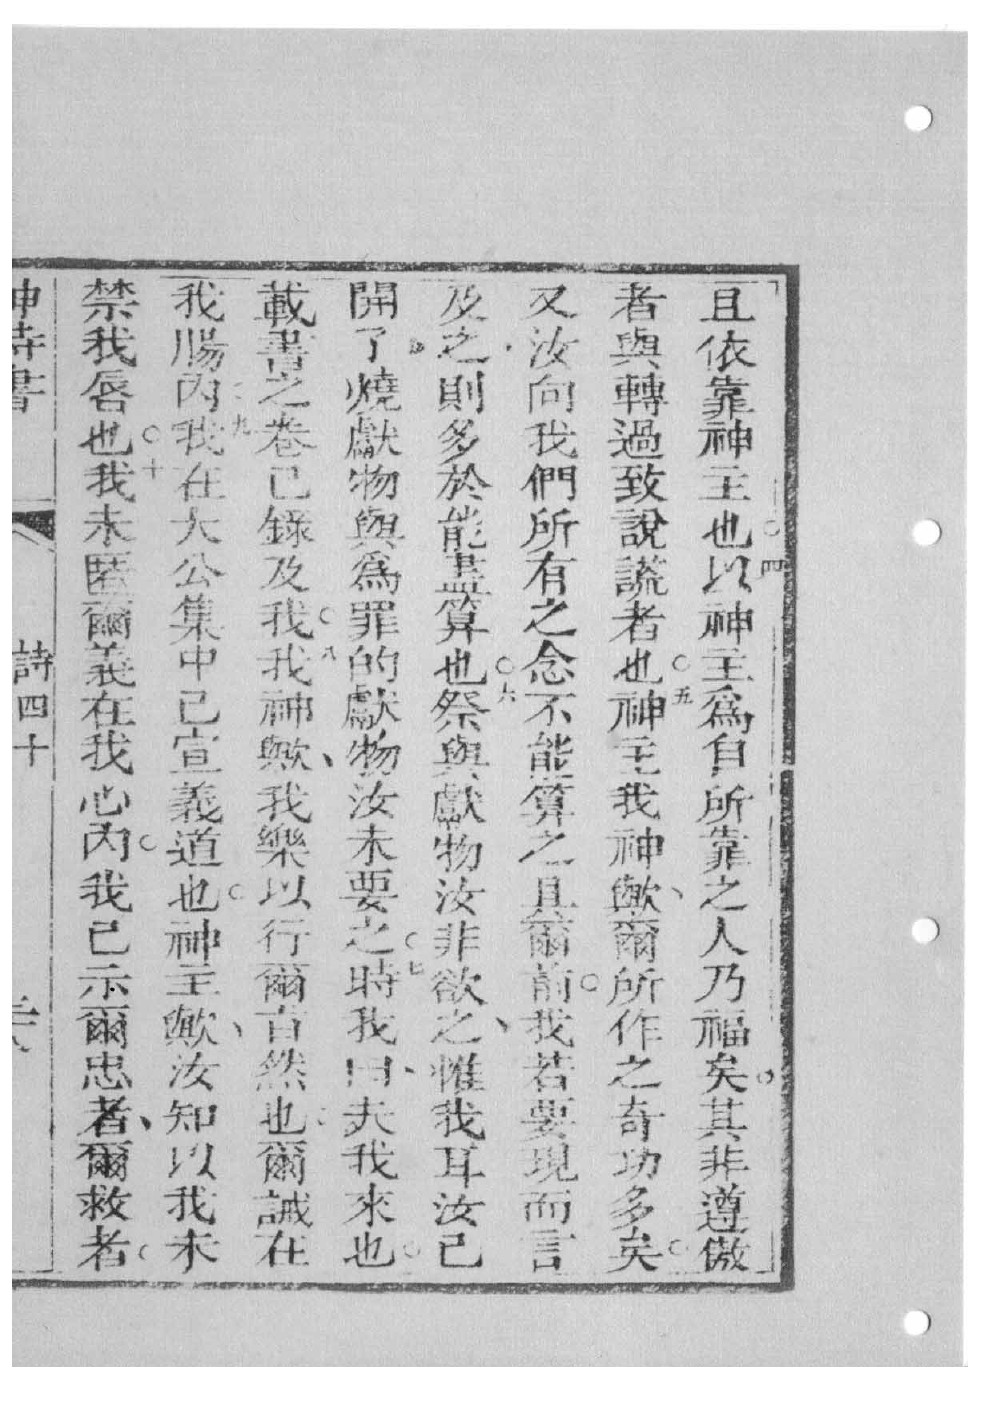 且依靠神主也○四以神主爲自所靠之人乃福矣○其非遵傲
者與轉過致說謊者也○五神主我神歟、爾所作之奇功多矣○
又汝向我們所有之念不能算之且爾前○我若要現而言
及之則多於能盡算也○六祭與獻物汝非欲之、惟我耳汝已
開了燒獻物與爲罪的獻物汝未要之○七時我曰、夫我來也○
載書之卷已錄及我○八我神歟、我樂以行爾旨然也爾誡在
我腸內○九我在大公集中已宣義道也○神主歟、汝知以我未
禁我唇也○十我未匿爾義在我心內○我已示爾忠者、爾救者○
神詩書 詩四十